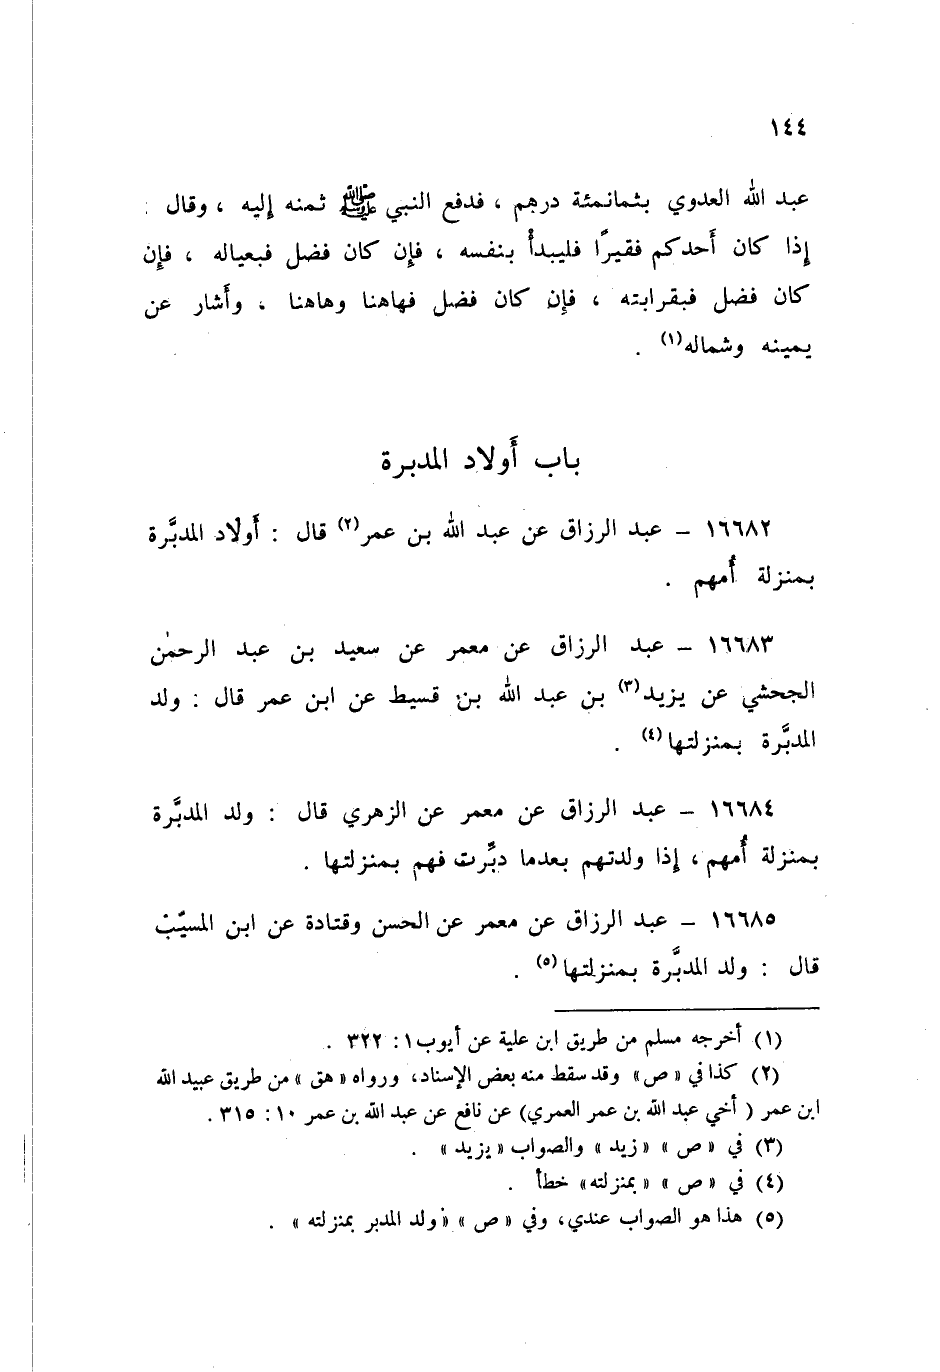 ١٤٤
عبد الله العدوي بثمانمئة درهم ، فدفع النبي ﷺ ثمنه إليه ، وقال :
إذا كان أحدكم فقيرًا فليبدأ بنفسه ، فإن كان فضل فبعياله ، فإن
كان فضل فبقرابته ، فإن كان فضل فهاهنا وهاهنا ، وأشار عن
يمينه وشماله(١) .
باب أولاد المدبرة
١٦٦٨٢ – عبد الرزاق عن عبد الله بن عمر(٢) قال : أولاد المدبَّرة
بمنزلة أُمهم .
١٦٦٨٣ – عبد الرزاق عن معمر عن سعيد بن عبد الرحمٰن
الجحشي عن يزيد(٣) بن عبد الله بن قسيط عن ابن عمر قال : ولد
المدبَّرة بمنزلتها(٤) .
١٦٦٨٤ – عبد الرزاق عن معمر عن الزهري قال : ولد المدبَّرة
بمنزلة أُمهم ، إذا ولدتهم بعدما دبِّرت فهم بمنزلتها .
١٦٦٨٥ – عبد الرزاق عن معمر عن الحسن وقتادة عن ابن المسيّب
قال : ولد المدبَّرة بمنزلتها(٥) .
(١) أخرجه مسلم من طريق ابن علية عن أيوب ١ : ٣٢٢ .
(٢) كذا في « ص » وقد سقط منه بعض الإسناد، ورواه « هق » من طريق عبيد الله
ابن عمر ( أخي عبد الله بن عمر العمري) عن نافع عن عبد الله بن عمر ١٠ : ٣١٥ .
(٣) في « ص » « زيد » والصواب « يزيد » .
(٤) في « ص » « بمنزلته» خطأ .
(٥) هذا هو الصواب عندي، وفي « ص » « ولد المدبر بمنزلته » .